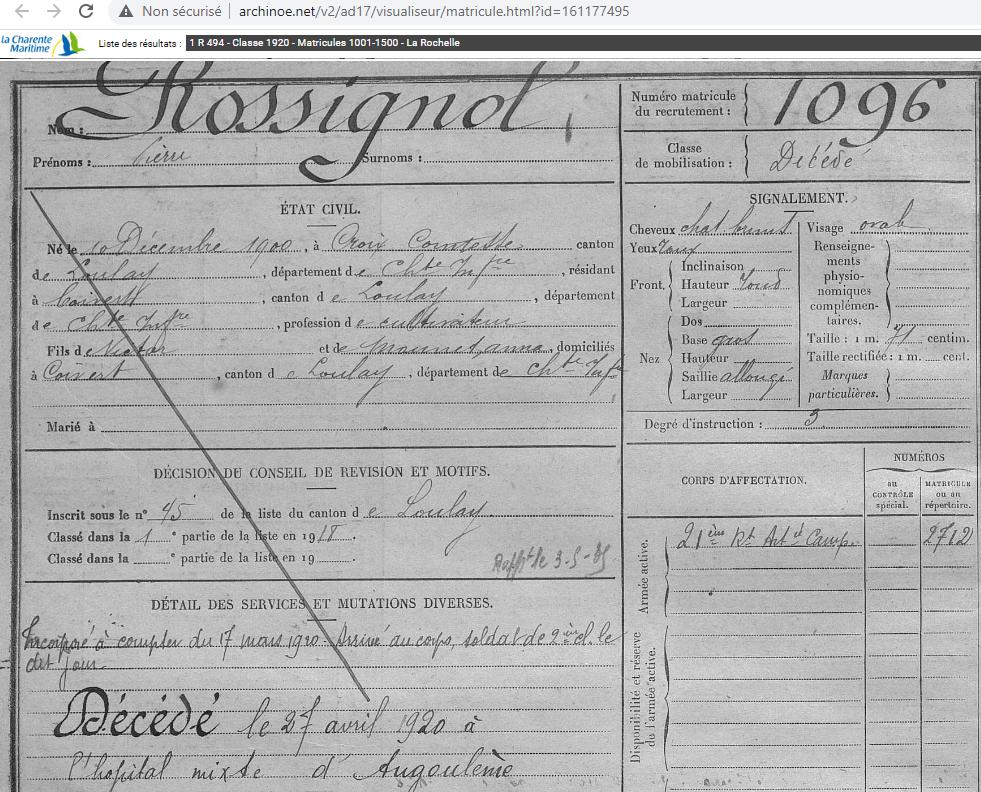 Non sécurisé | archinoe.net/v2/ad17/visualiseur/matricule.html?id=161177495
la Charente Maritime
Liste des résultats : 1 R 494 - Classe 1920 - Matricules 1001-1500 - La Rochelle
Nom : Rossignol
Prénoms : Pierre Surnoms :
Numéro matricule du recrutement : 1096
Classe de mobilisation : Décédé
ÉTAT CIVIL.
Né le 10 Décembre 1900, à Croix Comtesse canton
de Loulay, département de Chte Infre, résidant
à Coivert, canton de Loulay, département
de Chte Infre, profession de cultivateur
Fils de Victor et de, domiciliés
à Coivert, canton de Loulay, département de Chte Infre
Marié à
SIGNALEMENT.
Cheveux chat Visage ovale
Yeux
Front. Inclinaison
Hauteur
Largeur
Nez Dos
Base gros
Hauteur
Saillie allongé
Largeur
Renseignements physionomiques complémentaires.
Taille : 1 m. 71 centim.
Taille rectifiée : 1 m. cent.
Marques particulières.
Degré d'instruction : 3
DÉCISION DU CONSEIL DE REVISION ET MOTIFS.
Inscrit sous le n° 45 de la liste du canton de Loulay
Classé dans la 1 e partie de la liste en 19
Classé dans la e partie de la liste en 19
CORPS D'AFFECTATION.
NUMÉROS
au CONTRÔLE spécial.
MATRICULE ou au répertoire.
Armée active.
21ème Rt Art d Camp. 2712
Disponibilité et réserve de l'armée active.
DÉTAIL DES SERVICES ET MUTATIONS DIVERSES.
Incorporé à compter du 17 mars 1920. Arrivé au corps, soldat de 2ème cl. le
dit jour.
Décédé le 27 avril 1920 à
l'hopital mixte d'Angoulème